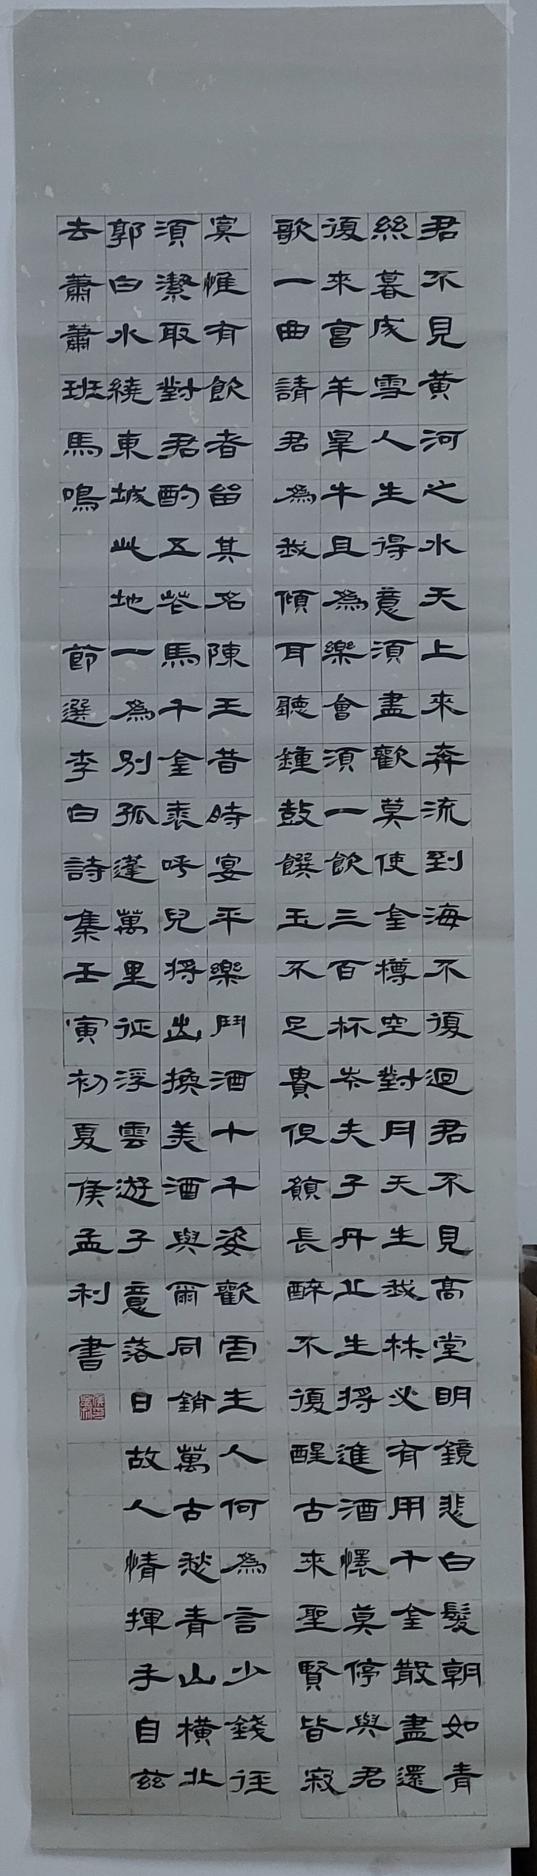 君不見黃河之水天上來奔流到海不復迴君不見高堂明鏡悲白髮朝如青
絲暮成雪人生得意須盡歡莫使金樽空對月天生我材必有用千金散盡還
復來烹羊宰牛且為樂會須一飲三百杯岑夫子丹丘生將進酒杯莫停與君
歌一曲請君為我傾耳聽鍾鼓饌玉不足貴但願長醉不復醒古來聖賢皆寂
寞惟有飲者留其名陳王昔時宴平樂鬥酒十千姿歡虐主人何為言少錢徑
須潔取對君酌五花馬千金裘呼兒將出換美酒與爾同銷萬古愁青山橫北
郭白水繞東城此地一為別孤蓬萬里征浮雲遊子意落日故人情揮手自茲
去蕭蕭班馬鳴 節選李白詩集壬寅初夏侯孟利書